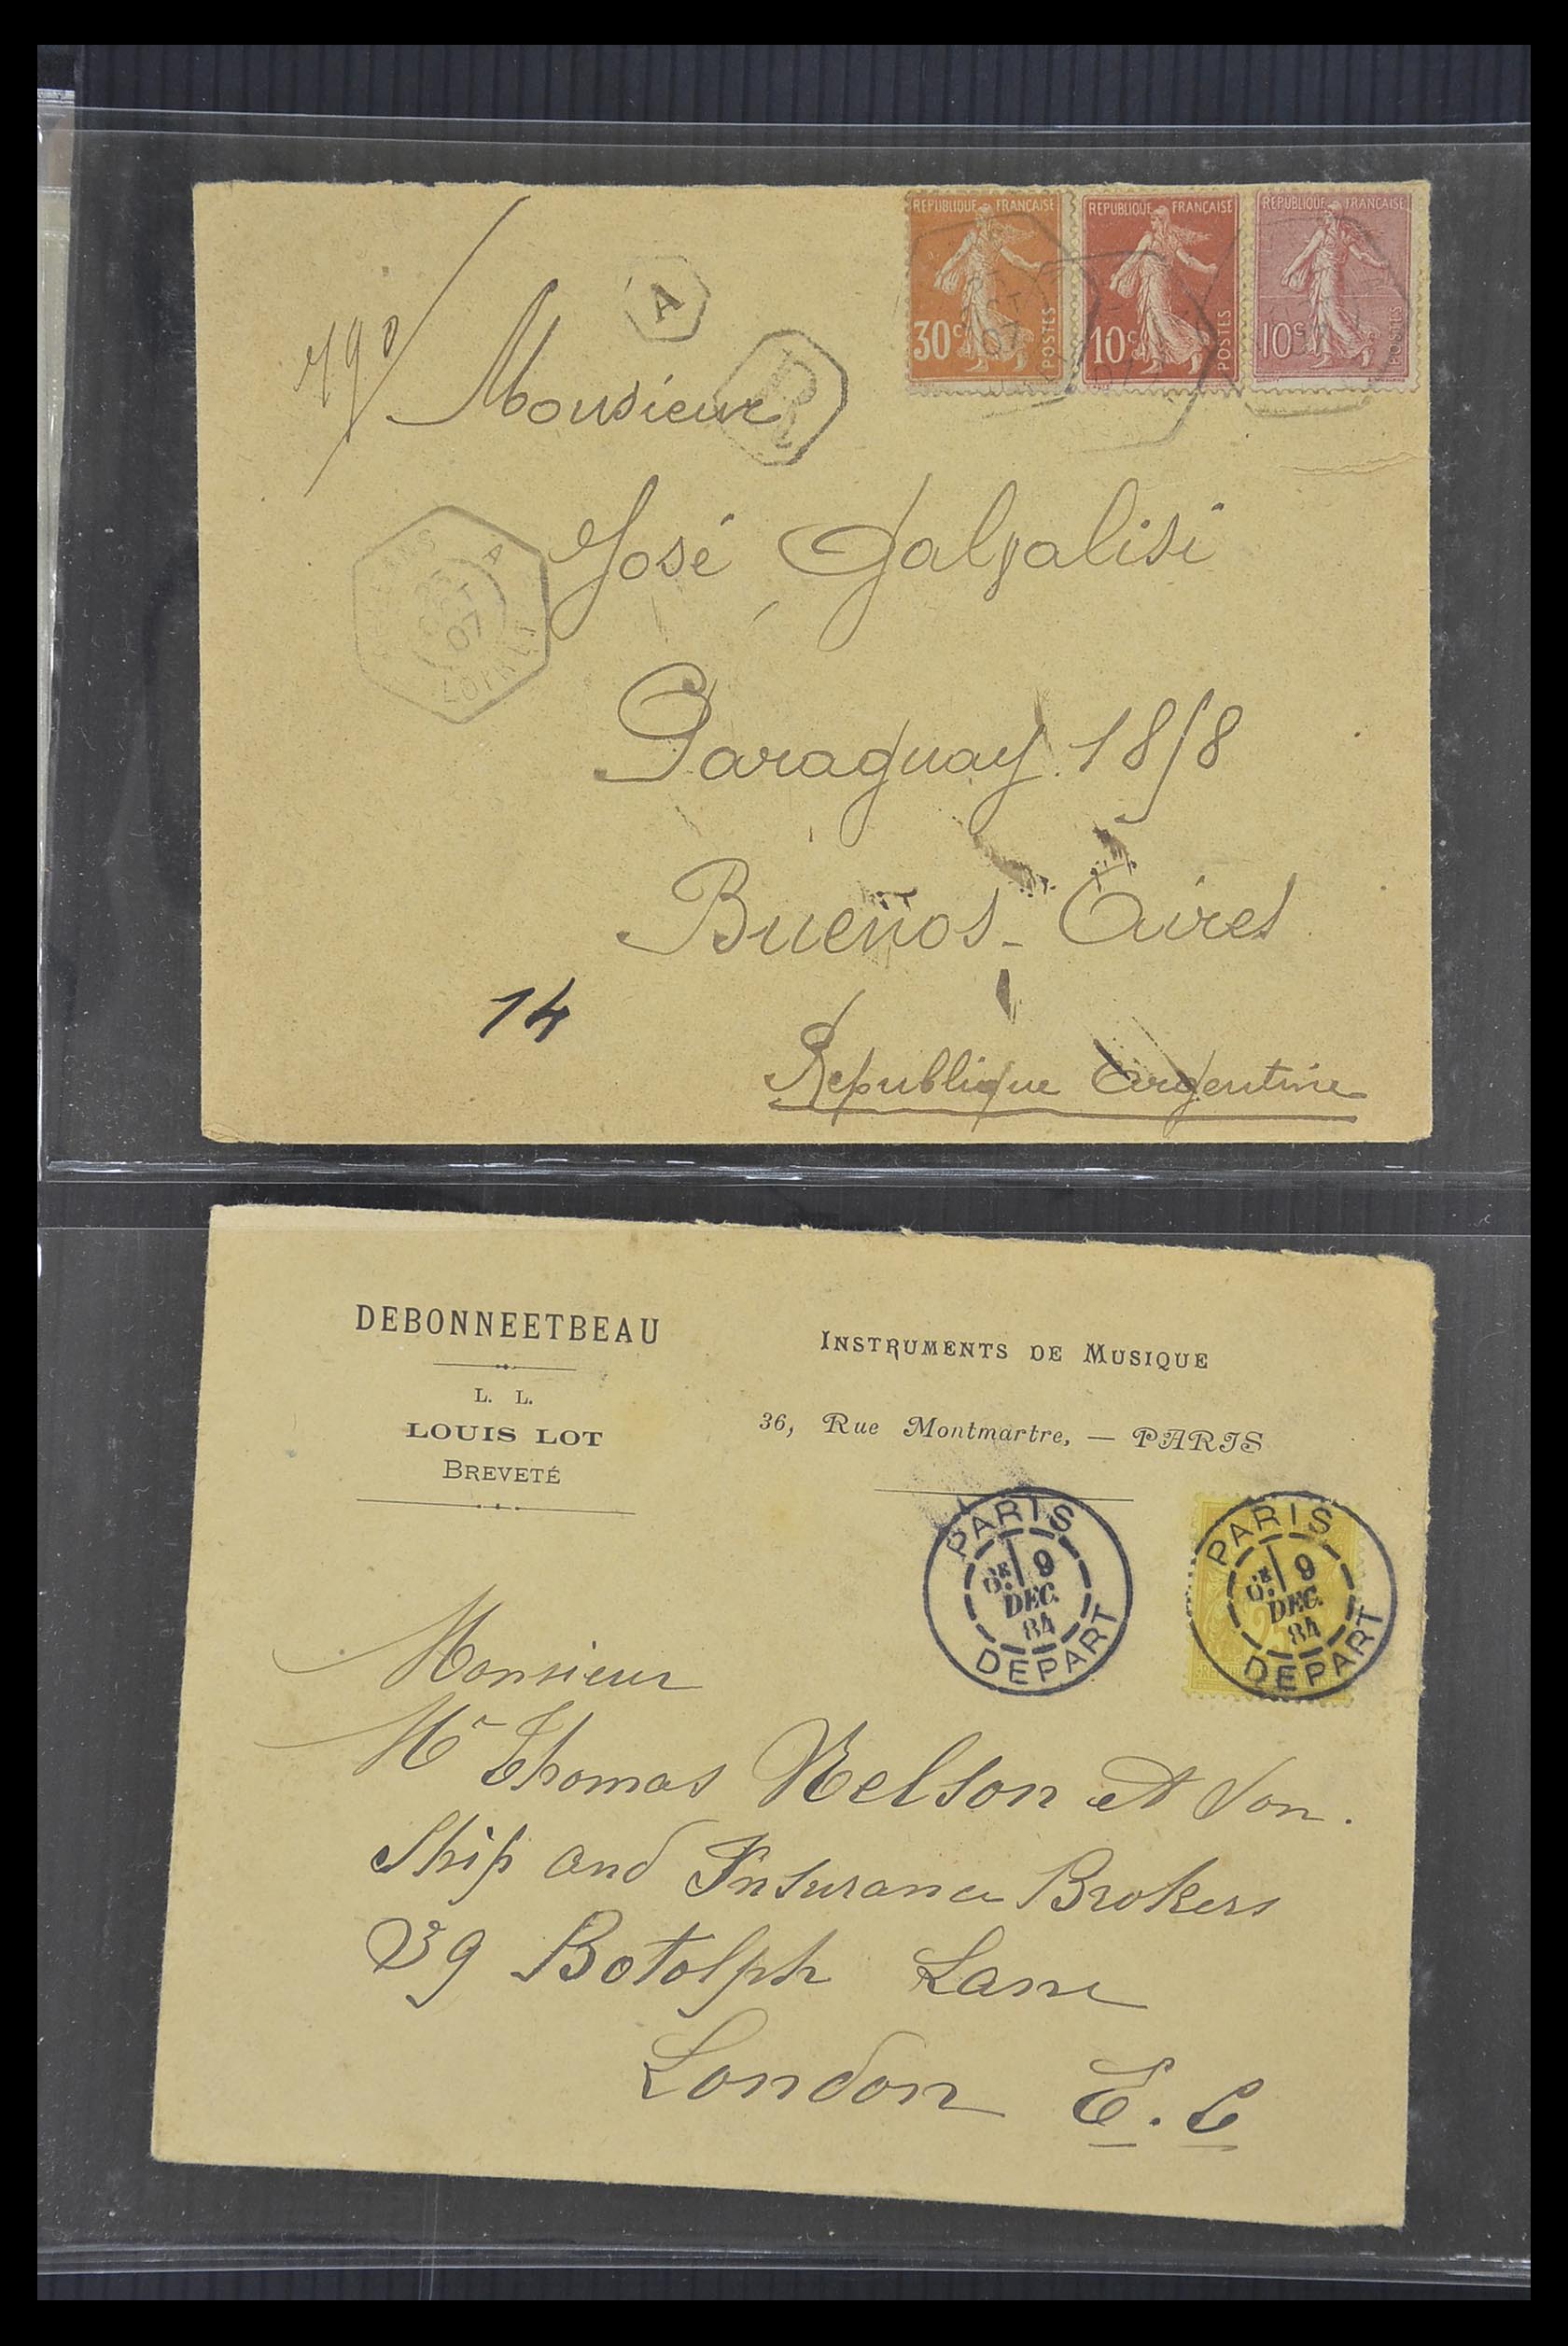 REPUBLIQUE FRANÇAISE
30c
POSTES
REPUBLIQUE FRANÇAISE
10c
POSTES
REPUBLIQUE FRANÇAISE
10c
POSTES
790
A
R
Monsieur
José
A
07
LOIRET
Paraguay. 1858
Buenos-Aires
14
Republique Argentine
DEBONNEETBEAU
L. L.
LOUIS LOT
BREVETÉ
INSTRUMENTS DE MUSIQUE
36, Rue Montmartre, — PARIS
PARIS
9
DEC.
84
DEPART
PARIS
9
DEC.
84
DEPART
Monsieur
Mr Thomas Nelson et Son.
Ship and Insurance Brokers
39 Botolph Lane
London E. C